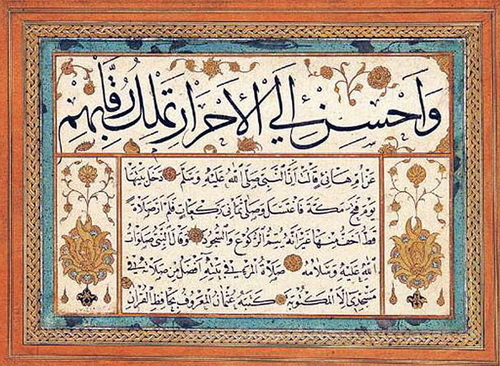 وَاَحْسِنْ اِلَى الْاَحْرَارِ تَمْلِكْ رِقَابَهُمْ
عن ام هانئ قالت ان النبي صلى الله عليه وسلم دخل بيتها
يوم فتح مكة فاغتسل وصلى ثماني ركعات فلم ار صلاة
قط اخف منها غير انه يتم الركوع والسجود وقال النبي صلوات
الله عليه وسلامه صلاة المرء في بيته افضل من صلاته في
مسجدي هذا الا المكتوبة كتبه عثمان المعروف بحافظ القرآن